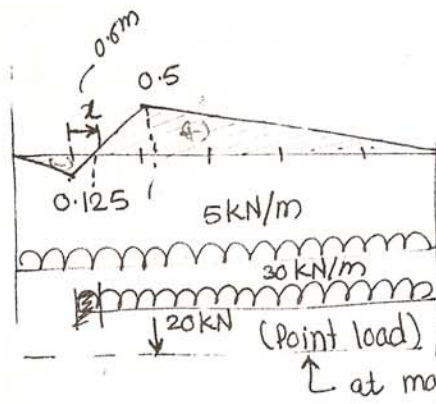 0.6m
x
0.5
(+)
(-)
0.125
5 kN/m
30 kN/m
20 kN
(Point load)
at ma